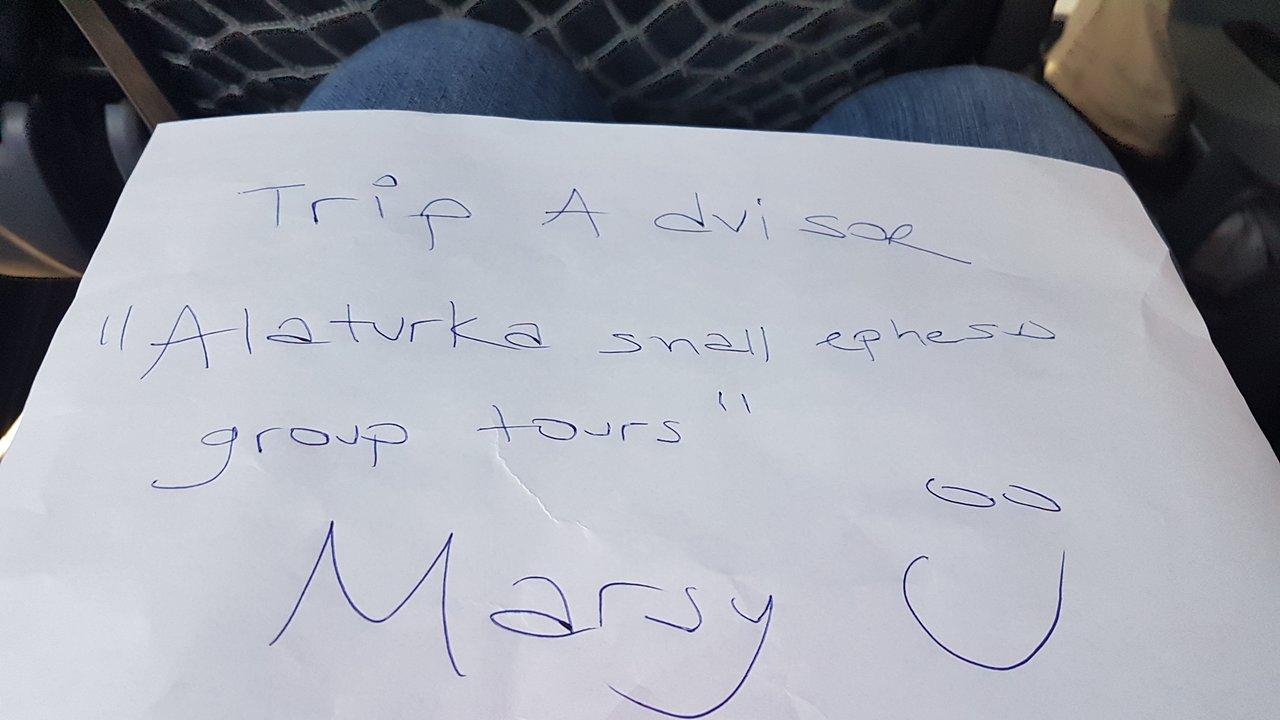 Trip Advisor
"Alaturka small ephesus
group tours"
Marsy